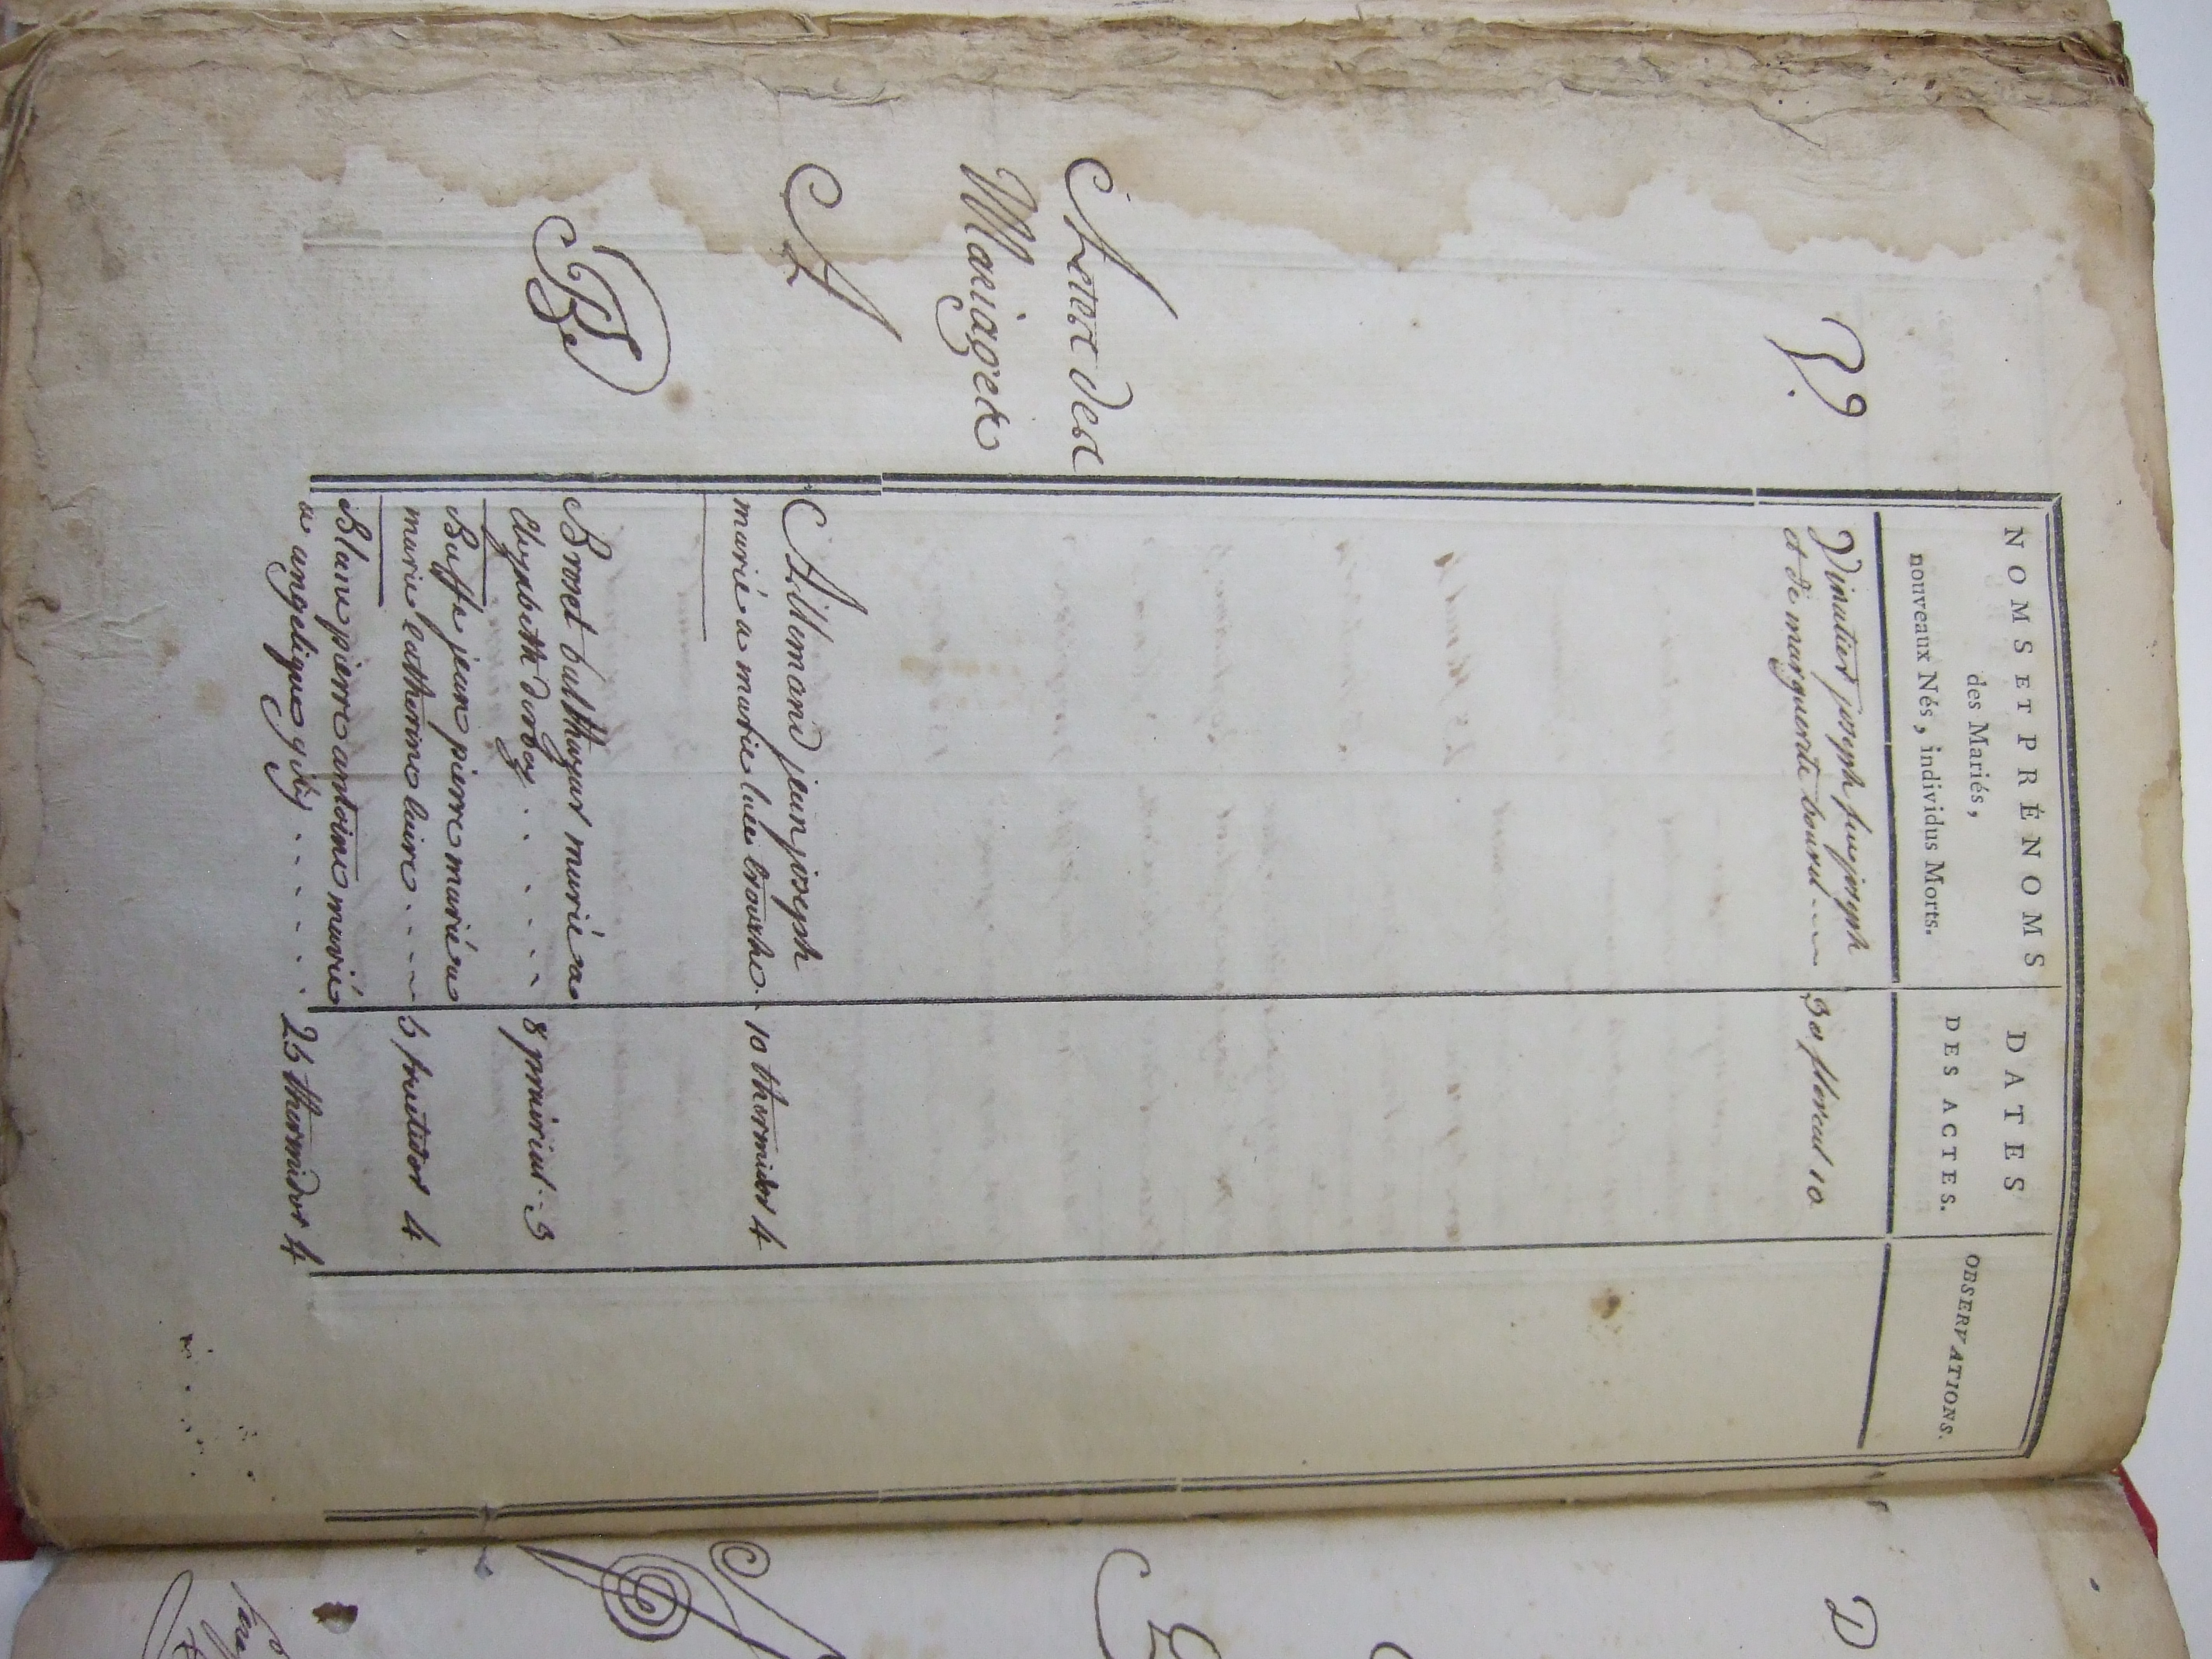 NOMS ET PRÉNOMS
des Mariés,
nouveaux Nés, individus Morts.
DATES
DES ACTES.
OBSERVATIONS.
V.
Vinatier joseph fils joseph
et de marguerite 30 floreal 10
Actes des
Mariages
A
Allemand jean joseph
marié a marie 10 thermidor 4
B
Bonnet balthazar marié a
Elizabeth 8 prairial 3
Buffe jean pierre marié a
marie catherine claire 5 fructidor 4
Blanc pierre antoine marié
a angelique 25 thermidor 4
D